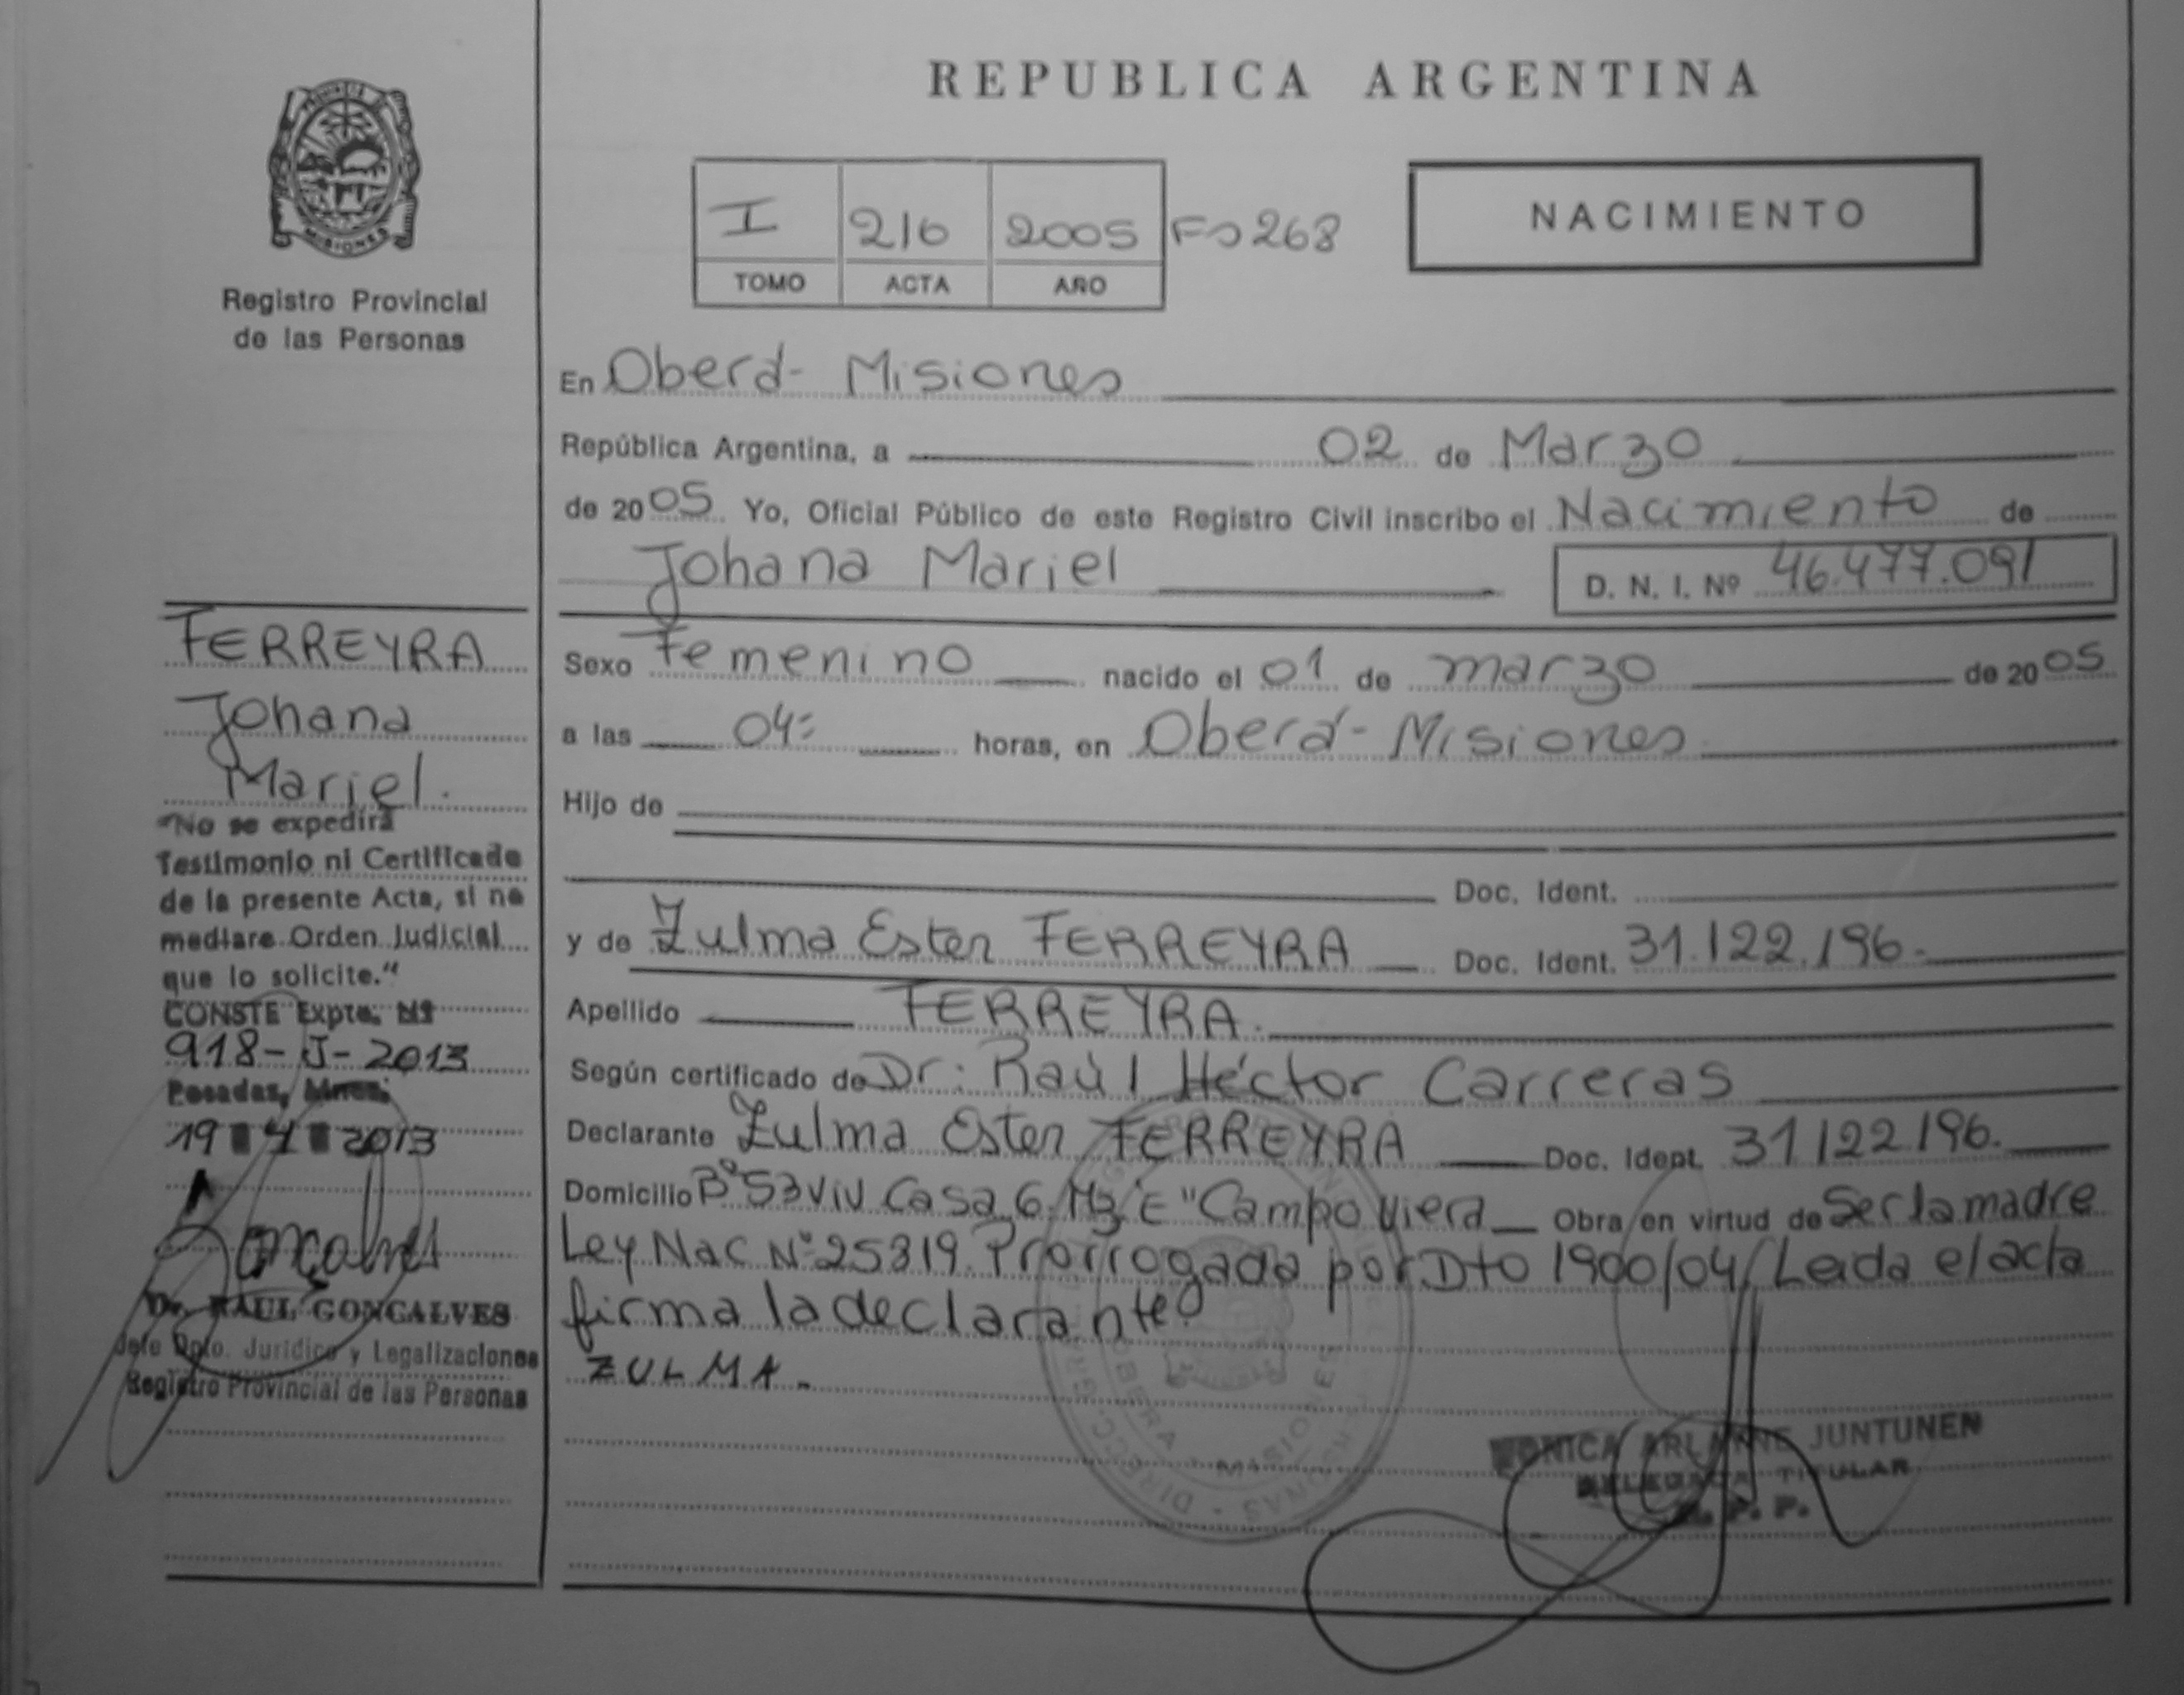 REPUBLICA ARGENTINA
PROVINCIA DE
MISIONES
Registro Provincial
de las Personas
I 216 2005 Fo 268
TOMO ACTA AÑO
NACIMIENTO
En Oberá - Misiones
República Argentina, a 02 de Marzo
de 2005 Yo, Oficial Público de este Registro Civil inscribo el Nacimiento de
Johana Mariel D. N. I. Nº 46.477.091
Sexo Femenino nacido el 01 de marzo de 2005
a las 04= horas, en Oberá - Misiones
Hijo de
Doc. Ident.
y de Zulma Ester FERREYRA Doc. Ident. 31.122.196.-
Apellido FERREYRA.
Según certificado de Dr. Raúl Héctor Carreras
Declarante Zulma Ester FERREYRA Doc. Ident. 31122196.
Domicilio Bº 53 Viv Casa 6 Mz "E" Campo Viera Obra en virtud de Ser la madre
Ley Nac Nº 25819 Prorrogada por Dto 1900/04/ Leida el acta
firma la declarante
ZULMA.
FERREYRA
Johana
Mariel.
"No se expedirá
Testimonio ni Certificado
de la presente Acta, si no
mediare Orden Judicial
que lo solicite."
CONSTE Expte. Nº
918-J-2013
Posadas, Mnes.
19 4 2013
Goncalves
Dr. RAUL GONCALVES
Jefe Dpto. Jurídico y Legalizaciones
Registro Provincial de las Personas
OBERA - MISIONES
MONICA ARLANNE JUNTUNEN
DELEGADA TITULAR
R. P. P.